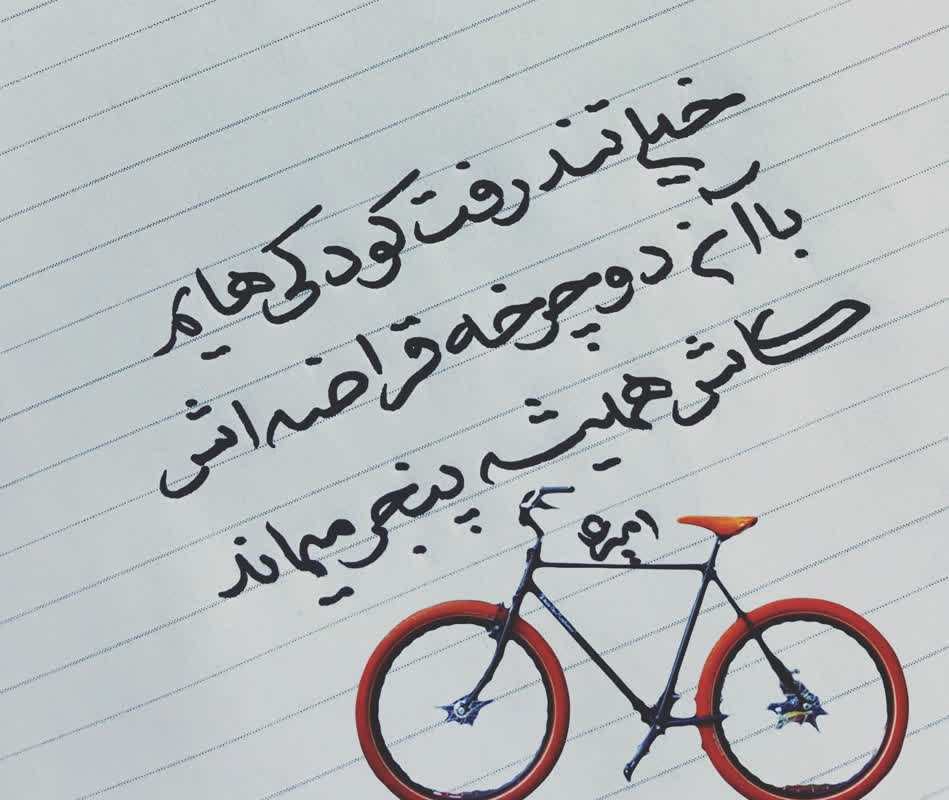 خیلی تند رفت کودکی هایم
با آن دوچرخه قراضه اش
کاش همیشه پنچر میماند